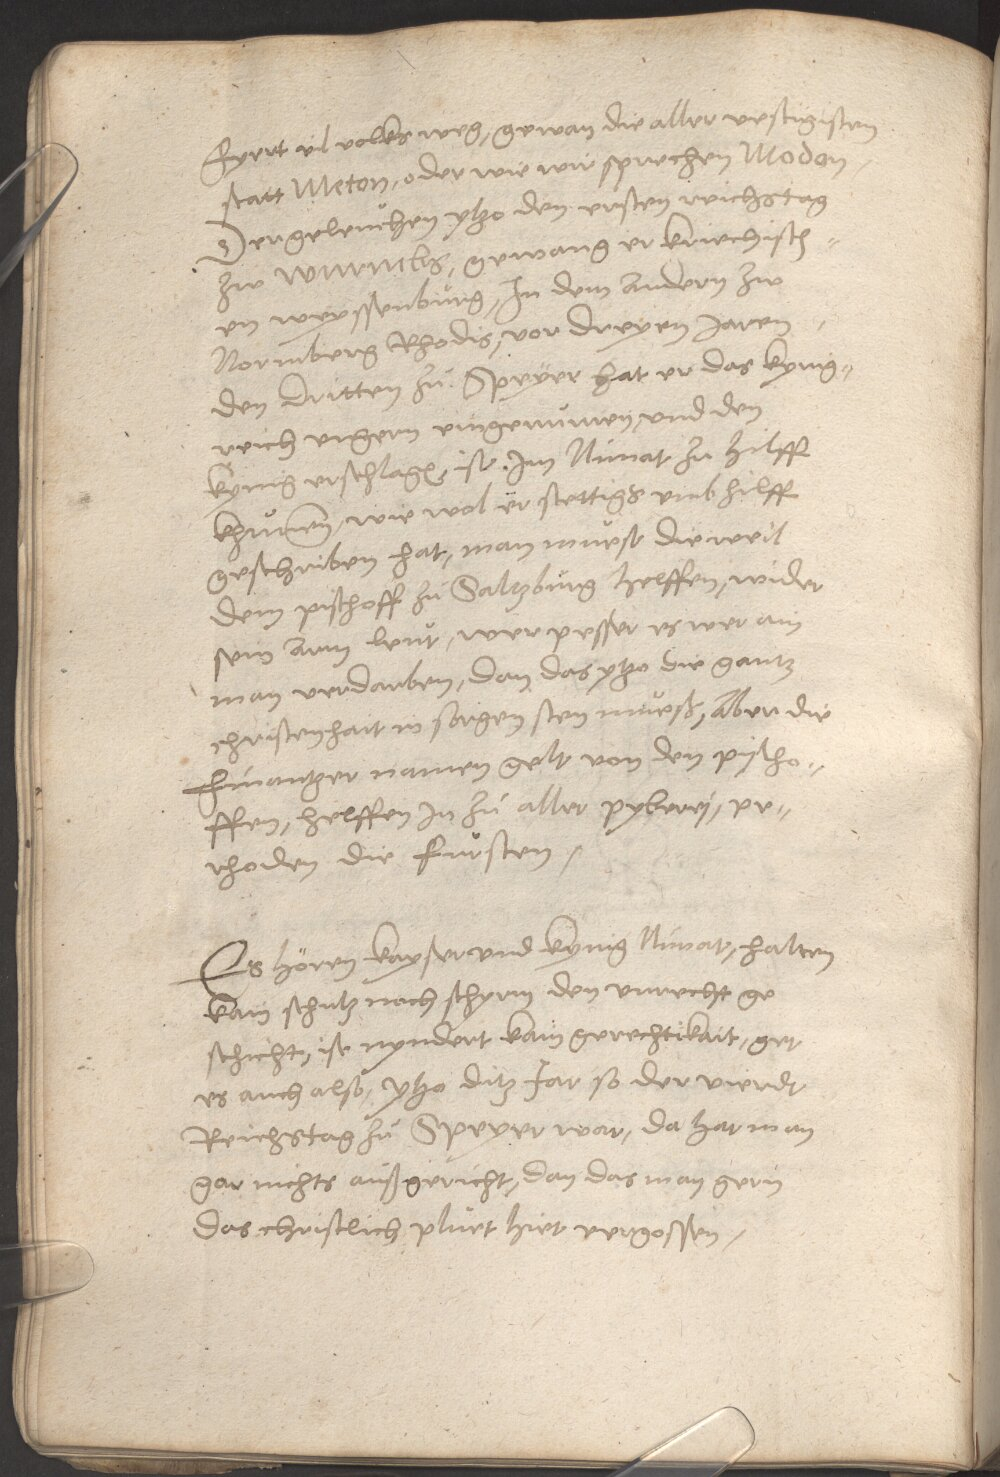 fyert vil volks weg, gewan die aller vestigisten
statt Meton, oder wie wir sprechen Modon,
Dergeleichen ytzo den ersten reichstag
zw wurmbs, gewang er kriechisch„
en weyssenburg, In dem andern zw
Normberg Rhodis, vor dreyen Jaren,
den dritten zu Speyer hat er das kynig„
reich ungern eingenumen, und den
kynig erschlagen, ist Im Nimat zu hilff
khumen, wie wol er stettigs umb hilff
geschriben hat, man muest die weil
dem pischoff zu Saltzburg helffen, wider
sein arm leut, wer pesser es wer ain
man verdarben, dan das ytzo die gantz
christenhait in sorgen sten muess, Aber die
finantzer namen gelt von den pischo„
ffen, helffen In zu aller pyberei, ve„
rhoden die fursten,
Es hören kayser und kynig Nimat, halten
kain schutz noch schyrm den unrecht ge
schicht, ist nyndert kain gerechtikait, get
es auch also, ytzo ditz Jar so der vierdt
Reichstag zu Speyer war, da hat man
gar nichts aussgericht, dan das man gern
das christlich pluet hiet vergossen,